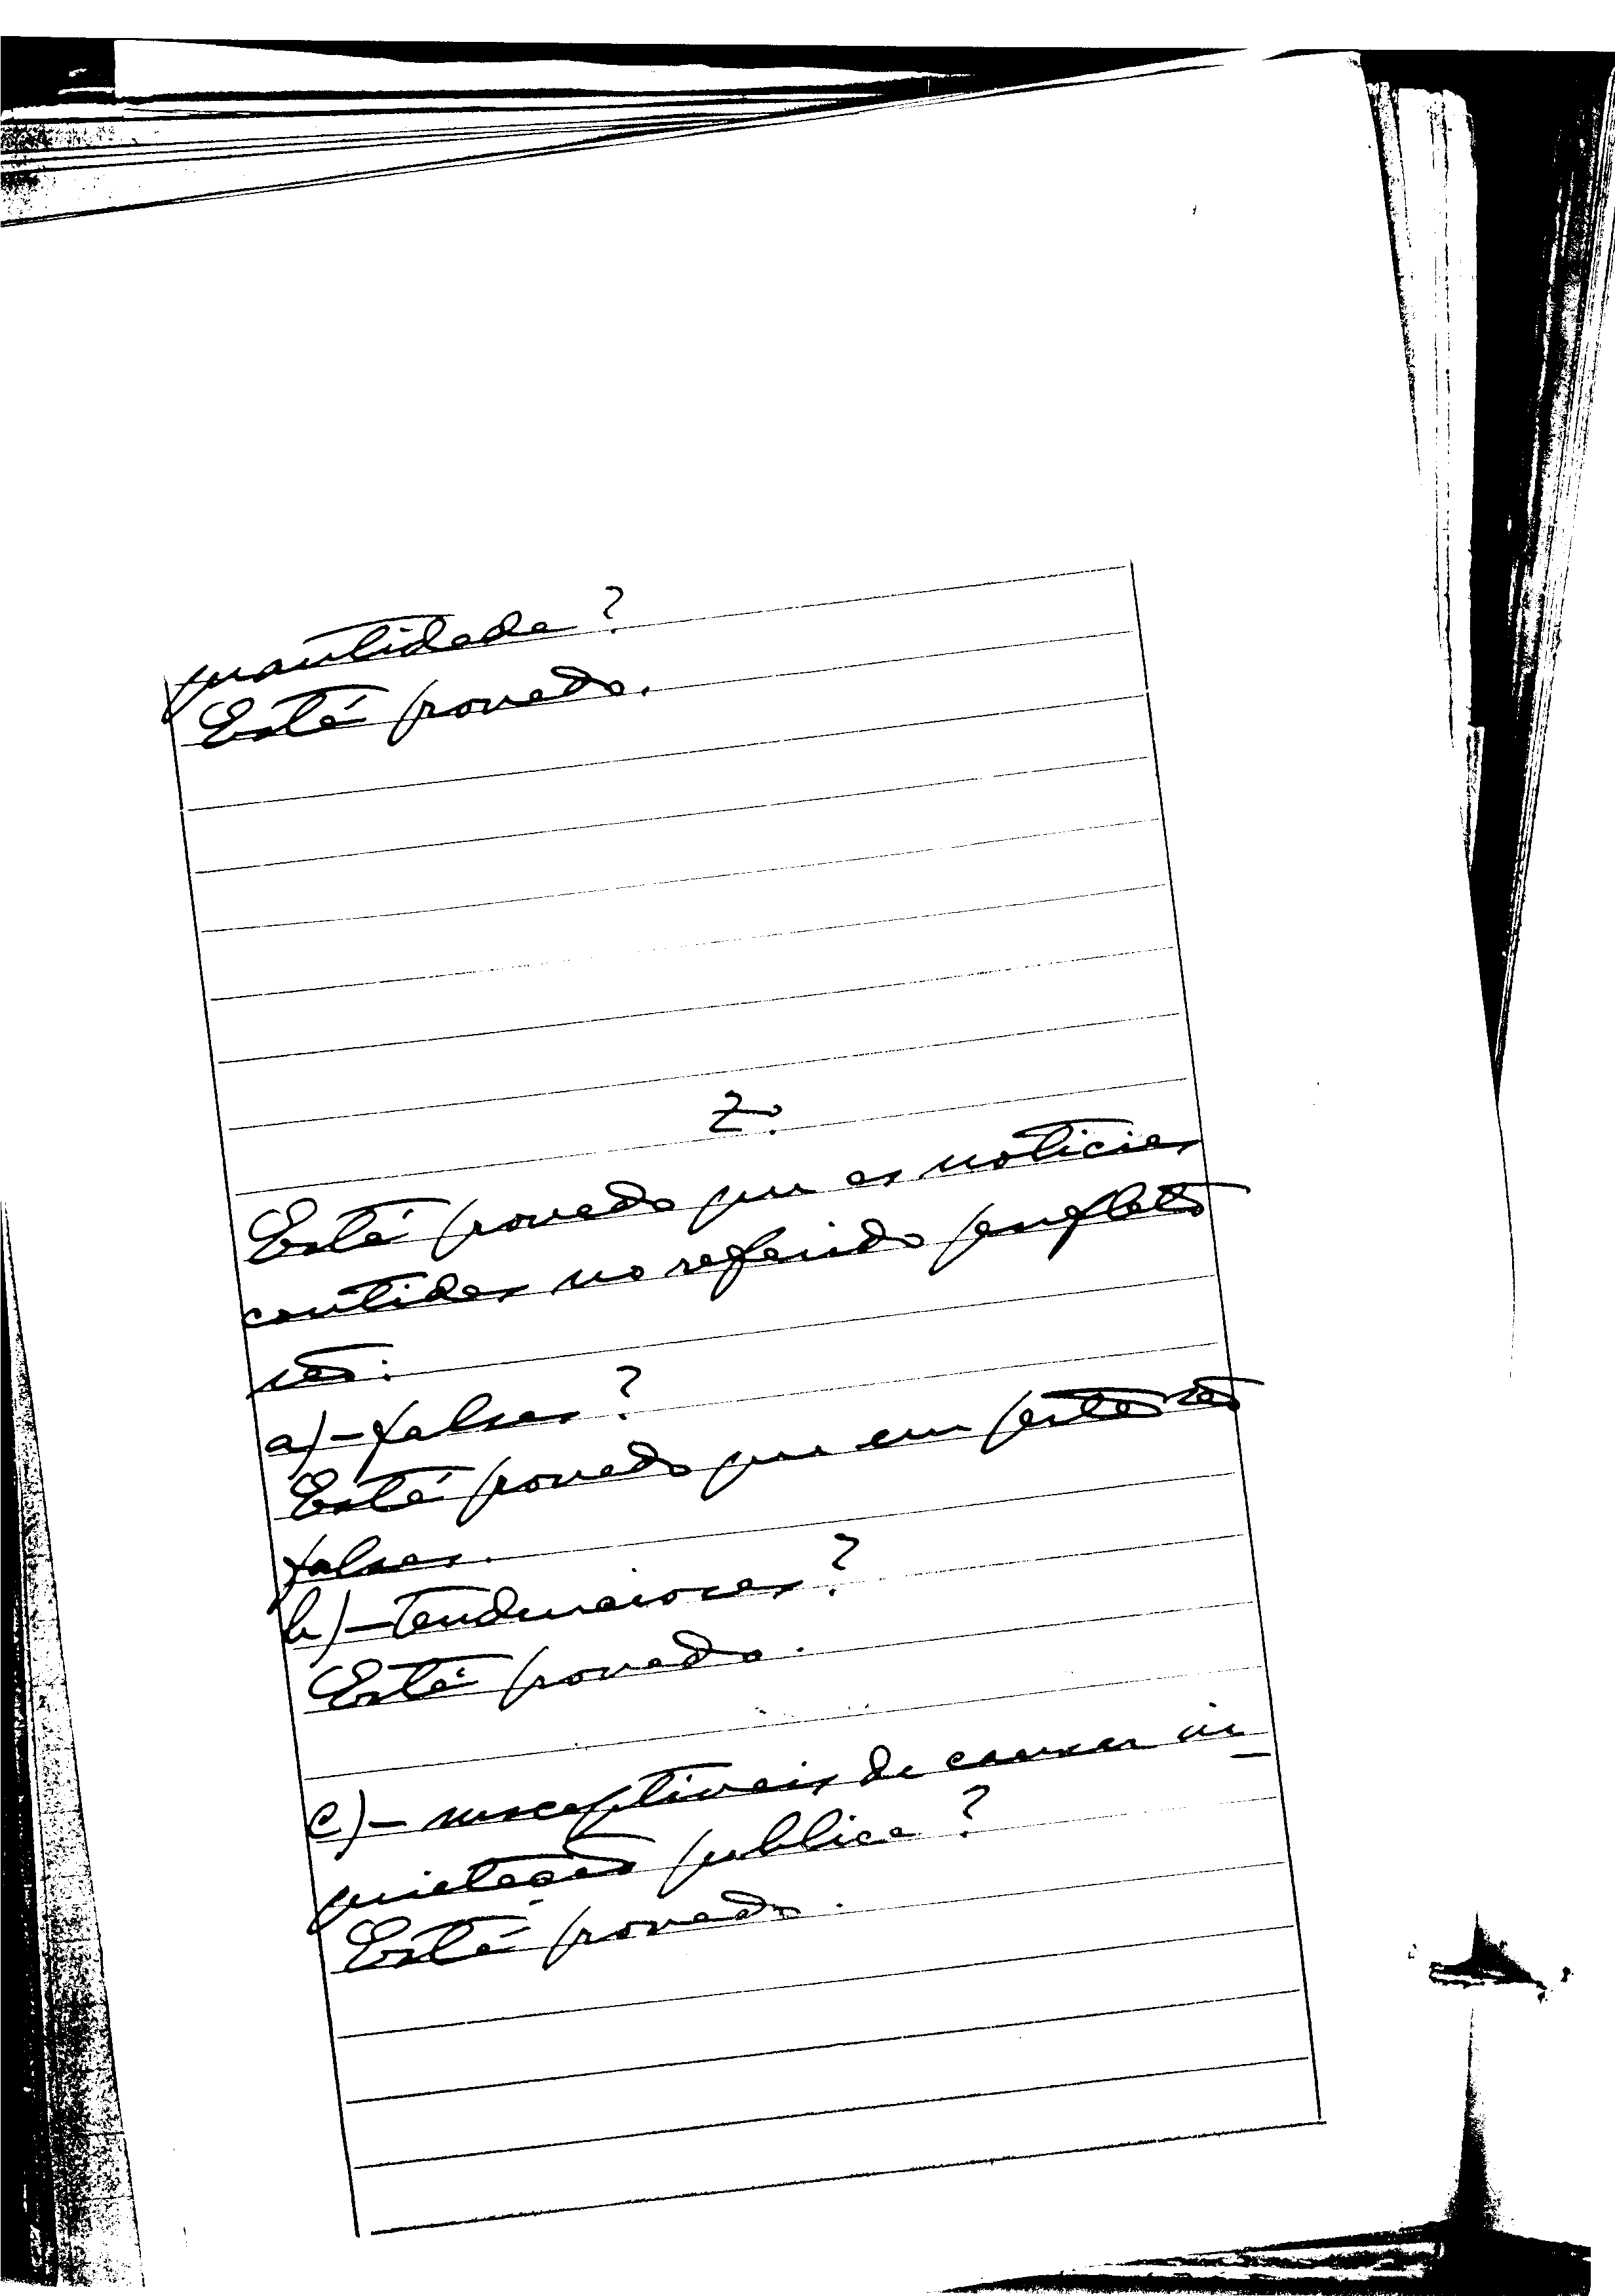 quantidade?
Está provado.
2º
Está provado que as noticias
contidas no referido panfleto
são:
a)-falsas?
Está provado que em parte são
falsas.
b)-Tendenciosas?
Está provado.
c)-susceptiveis de causar in-
quietação publica?
Está provado.